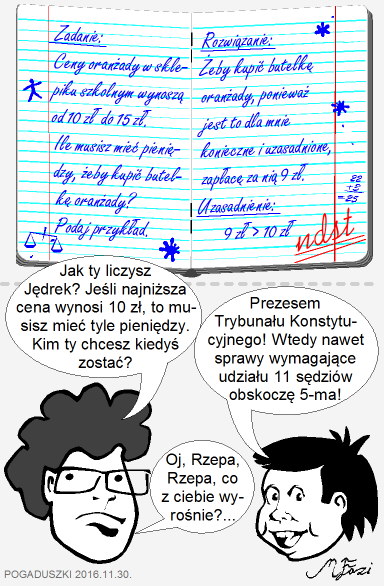 Zadanie:
Ceny oranżady w skle-
piku szkolnym wynoszą
od 10 zł do 15 zł.
Ile musisz mieć pienię-
dzy, żeby kupić butel-
kę oranżady?
Podaj przykład.
Rozwiązanie:
Żeby kupić butelkę
oranżady, ponieważ
jest to dla mnie
konieczne i uzasadnione,
zapłacę za nią 9 zł.
Uzasadnienie:
9 zł > 10 zł
ndst
Jak ty liczysz
Jędrek? Jeśli najniższa
cena wynosi 10 zł, to mu-
sisz mieć tyle pieniędzy.
Kim ty chcesz kiedyś
zostać?
Prezesem
Trybunału Konstytu-
cyjnego! Wtedy nawet
sprawy wymagające
udziału 11 sędziów
obskoczę 5-ma!
Oj, Rzepa,
Rzepa, co
z ciebie wy-
rośnie?...
POGADUSZKI 2016.11.30.